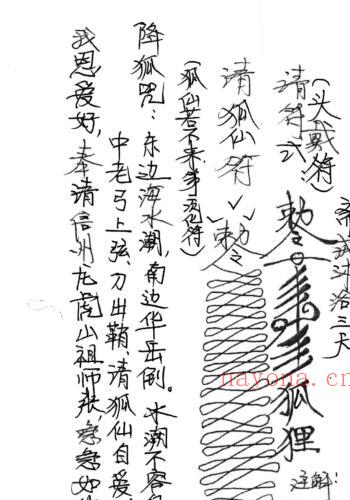 斋戒沐浴三天
注解:
(头戴符)
请符式
敕令
狐狸
请狐仙符
敕令
(狐仙若不来 符)
降狐咒:东边海水潮,南边华岳倒。水潮不容
中老弓上弦,刀出鞘,请狐仙自爱,
我恩爱好,奉请信州龙虎山祖师张,急急如
nayona.cn